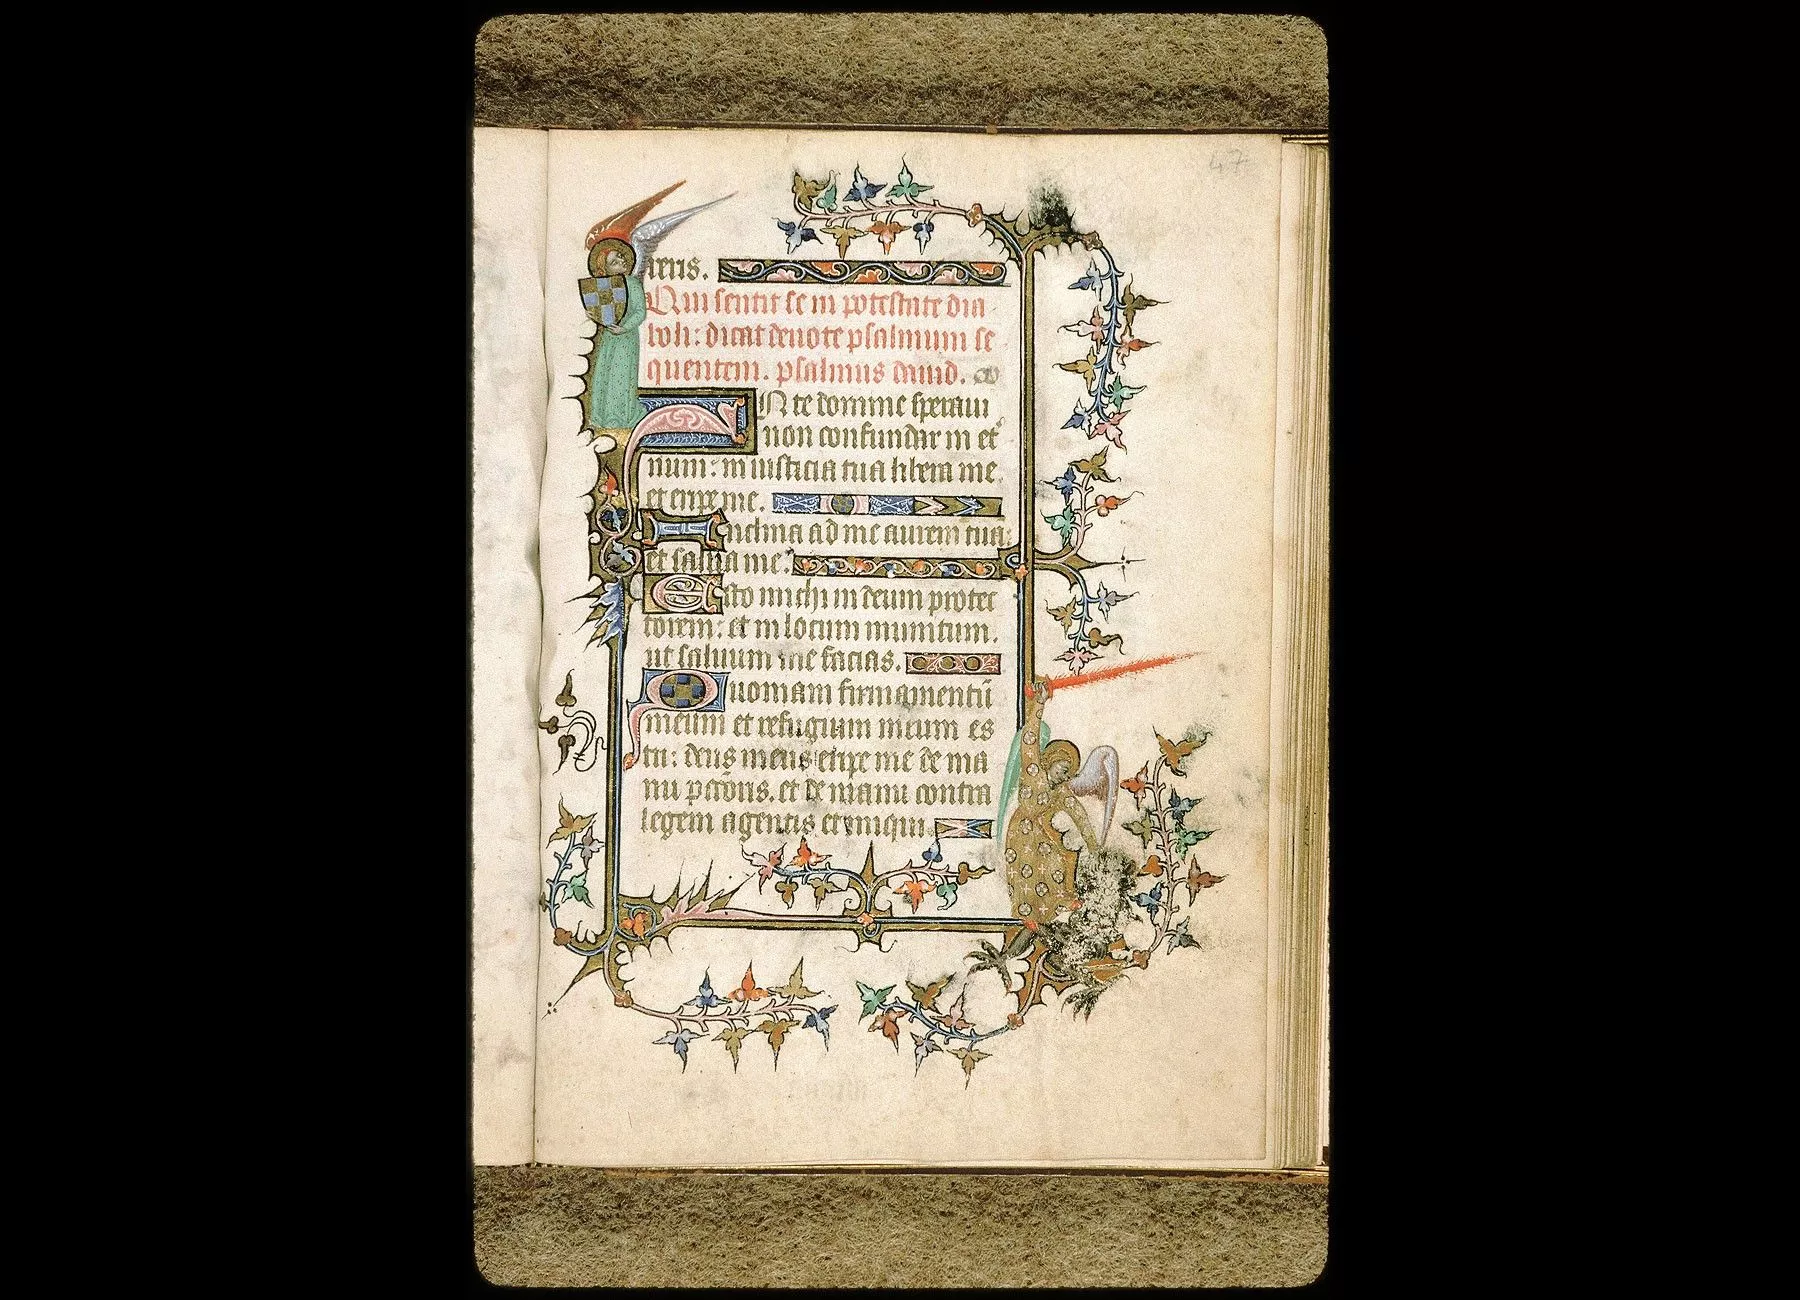 47
ieris.
Qui sentit se in potestate dia
boli: dicat deuote psalmum se
quentem. psalmus dauid.
IN te domine speraui
non confundar in et̾
num: in iusticia tua libera me
et eripe me.
Inclina ad me aurem tuā:
et salua me.
Esto michi in deum protec
torem: et in locum munitum.
ut saluum me facias.
Quoniam firmamentū
meum et refugium meum es
tu: deus meus eripe me de ma
nu pctōris. et de manu contra
legem agentis et iniqui.